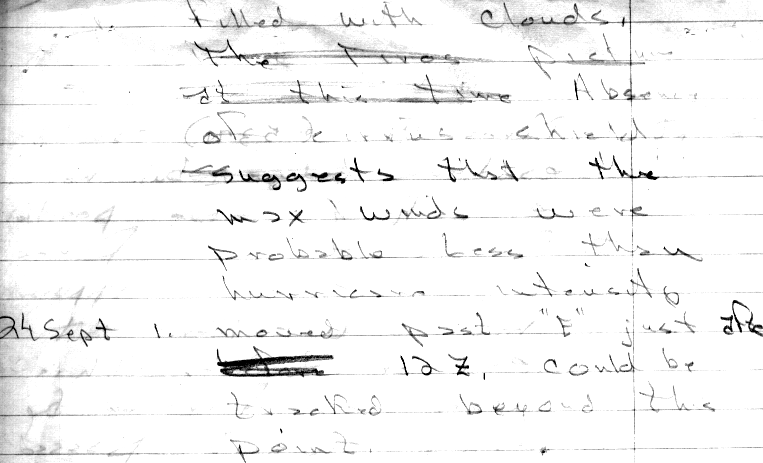 filled with clouds.
The Tiros picture
at this time Absence
of a cirrus shield
suggests that the
max winds were
probable less than
hurricane intensity
24 Sept 1. moved past "E" just after
12 Z, could be
tracked beyond this
point.